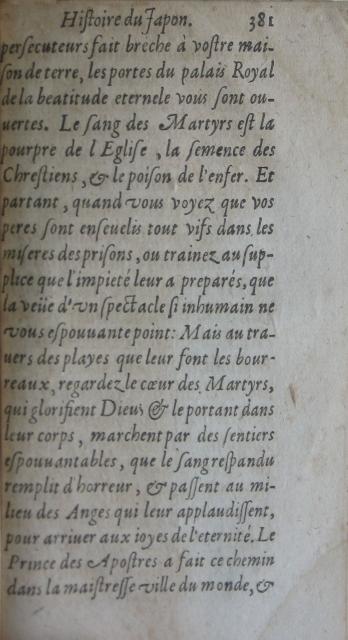 Histoire du Japon. 381
persecuteurs fait breche à vostre mai-
son de terre, les portes du palais Royal
de la beatitude eternele vous sont ou-
uertes. Le sang des Martyrs est la
pourpre de l Eglise, la semence des
Chrestiens, & le poison de l'enfer. Et
partant, quand vous voyez que vos
peres sont enseuelis tout vifs dans les
miseres des prisons, ou trainez au sup-
plice que l'impieté leur a preparés, que
la veüe d'vn spectacle si inhumain ne
vous espouuante point: Mais au tra-
uers des playes que leur font les bour-
reaux, regardez le cœur des Martyrs,
qui glorifient Dieu; & le portant dans
leur corps, marchent par des sentiers
espouuantables, que le sang respandu
remplit d horreur, & passent au mi-
lieu des Anges qui leur applaudissent,
pour arriuer aux ioyes de l'eternité. Le
Prince des Apostres a fait ce chemin
dans la maistresse ville du monde, &